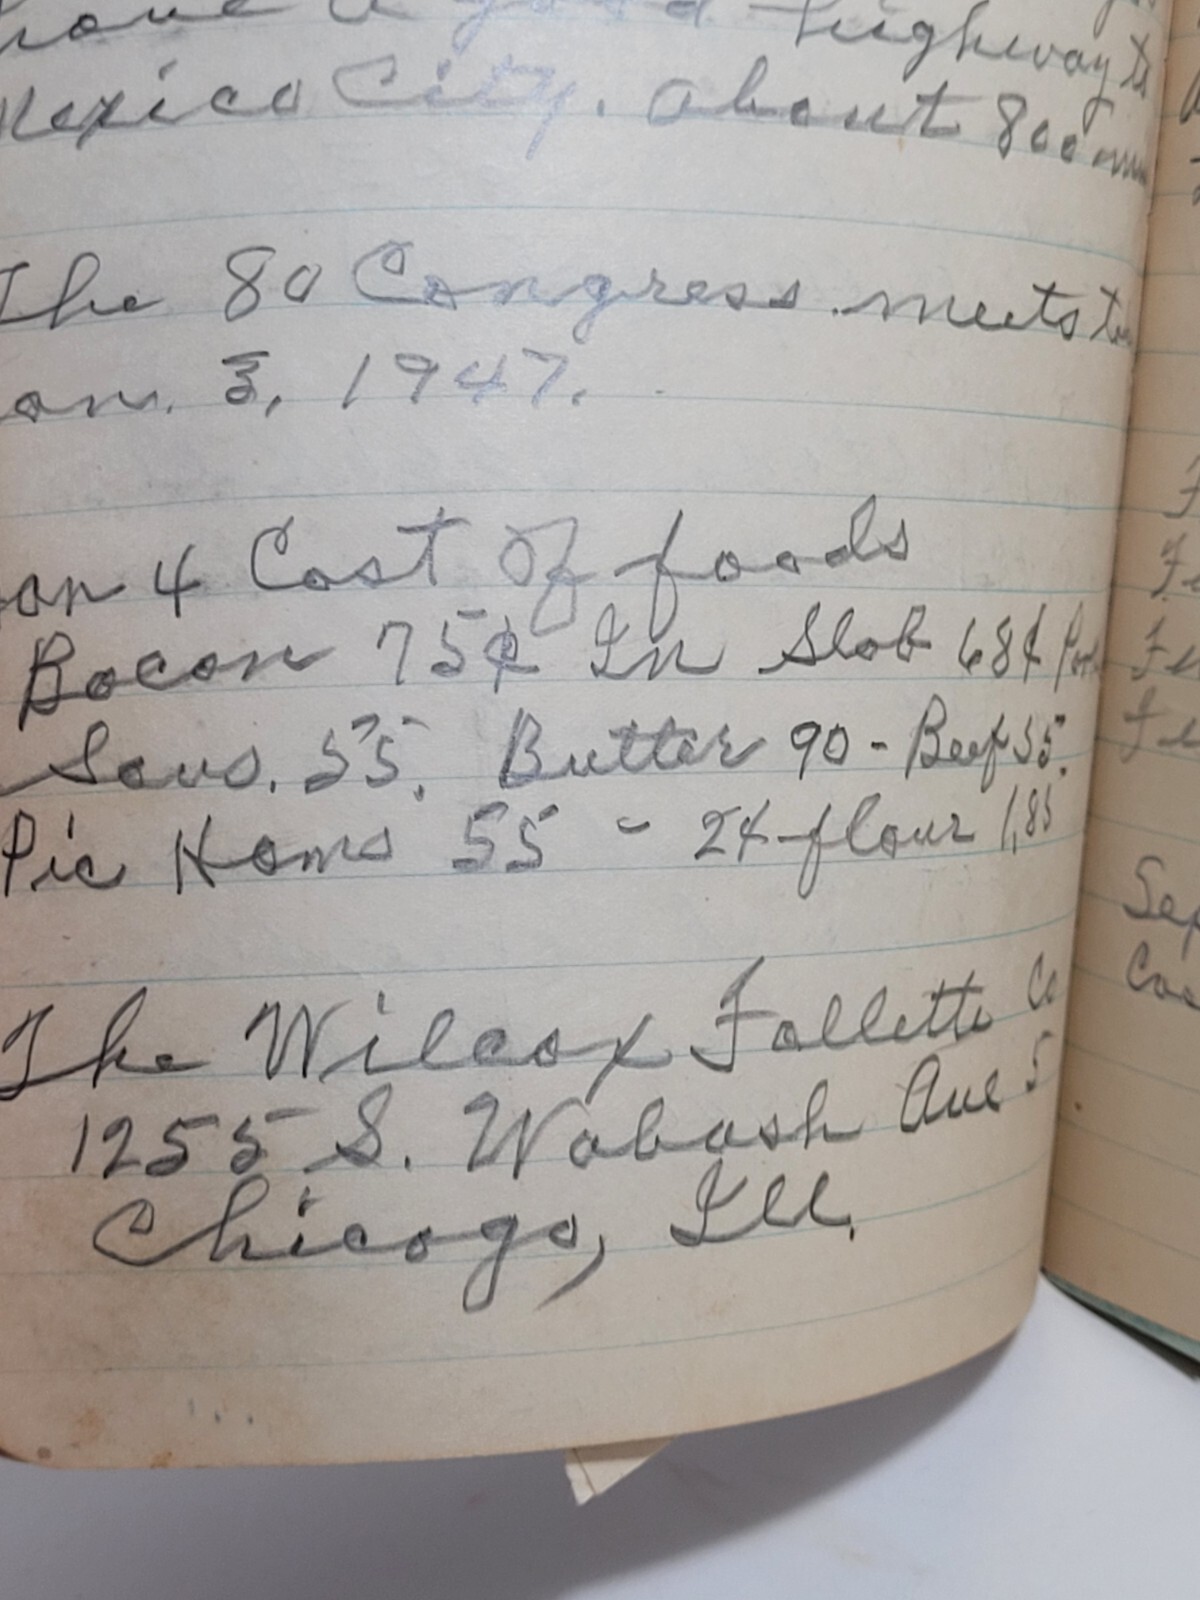 have a good highway to
Mexico City. about 800
The 80 Congress meets
Jan. 3, 1947.
Jan 4 Cost Of foods
Bacon 75¢ In Slab 68¢
Saus. 55. Butter 90 - Beef 55.
Pic Hams 55 - 24 flour 1.85
The Wilcox Follette Co
1255 S. Wabash Ave 5
Chicago, Ill.